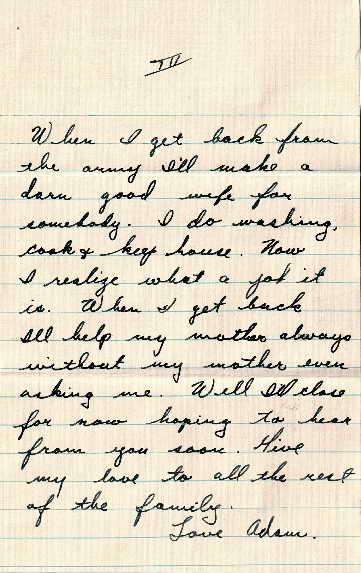 III
When I get back from
the army I'll make a
darn good wife for
somebody. I do washing,
cook & keep house. Now
I realize what a job it
is. When I get back
I'll help my mother always
without my mother even
asking me. Well I'll close
for now hoping to hear
from you soon. Give
my love to all the rest
of the family.
Love Adam.